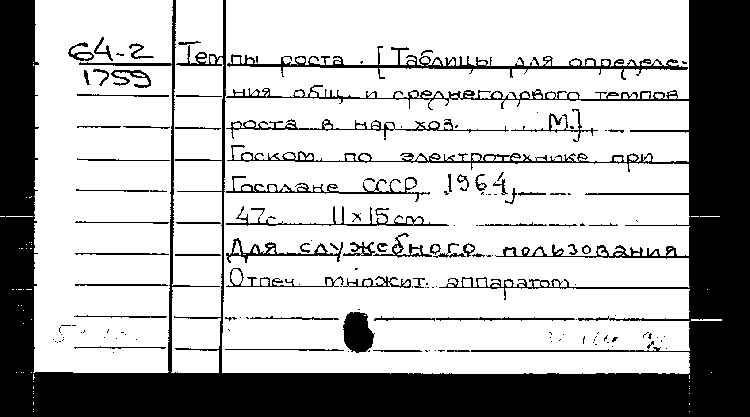 64-2 Темпы роста. [Таблицы для определе-
1759
ния общ. и среднегодового темпов
роста в нар. хоз. М.],
Госком. по электротехнике при
Госплане СССР, 1964,
47с. 11x15 cm.
Для служебного пользования
Отпеч. множит. аппаратом